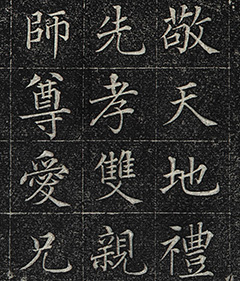 敬天地禮
先孝雙親
師尊愛兄